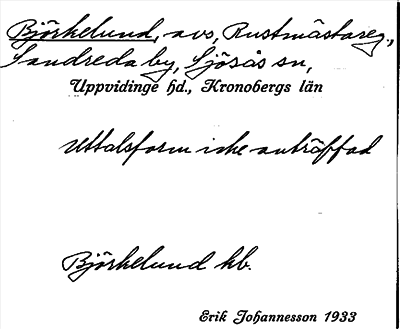 Björkelund, avs, Rustmästareg.,
Sandreda by, Sjösås sn,
Uppvidinge hd., Kronobergs län
Uttalsform icke anträffad
Björkelund kb.
Erik Johannesson 1933